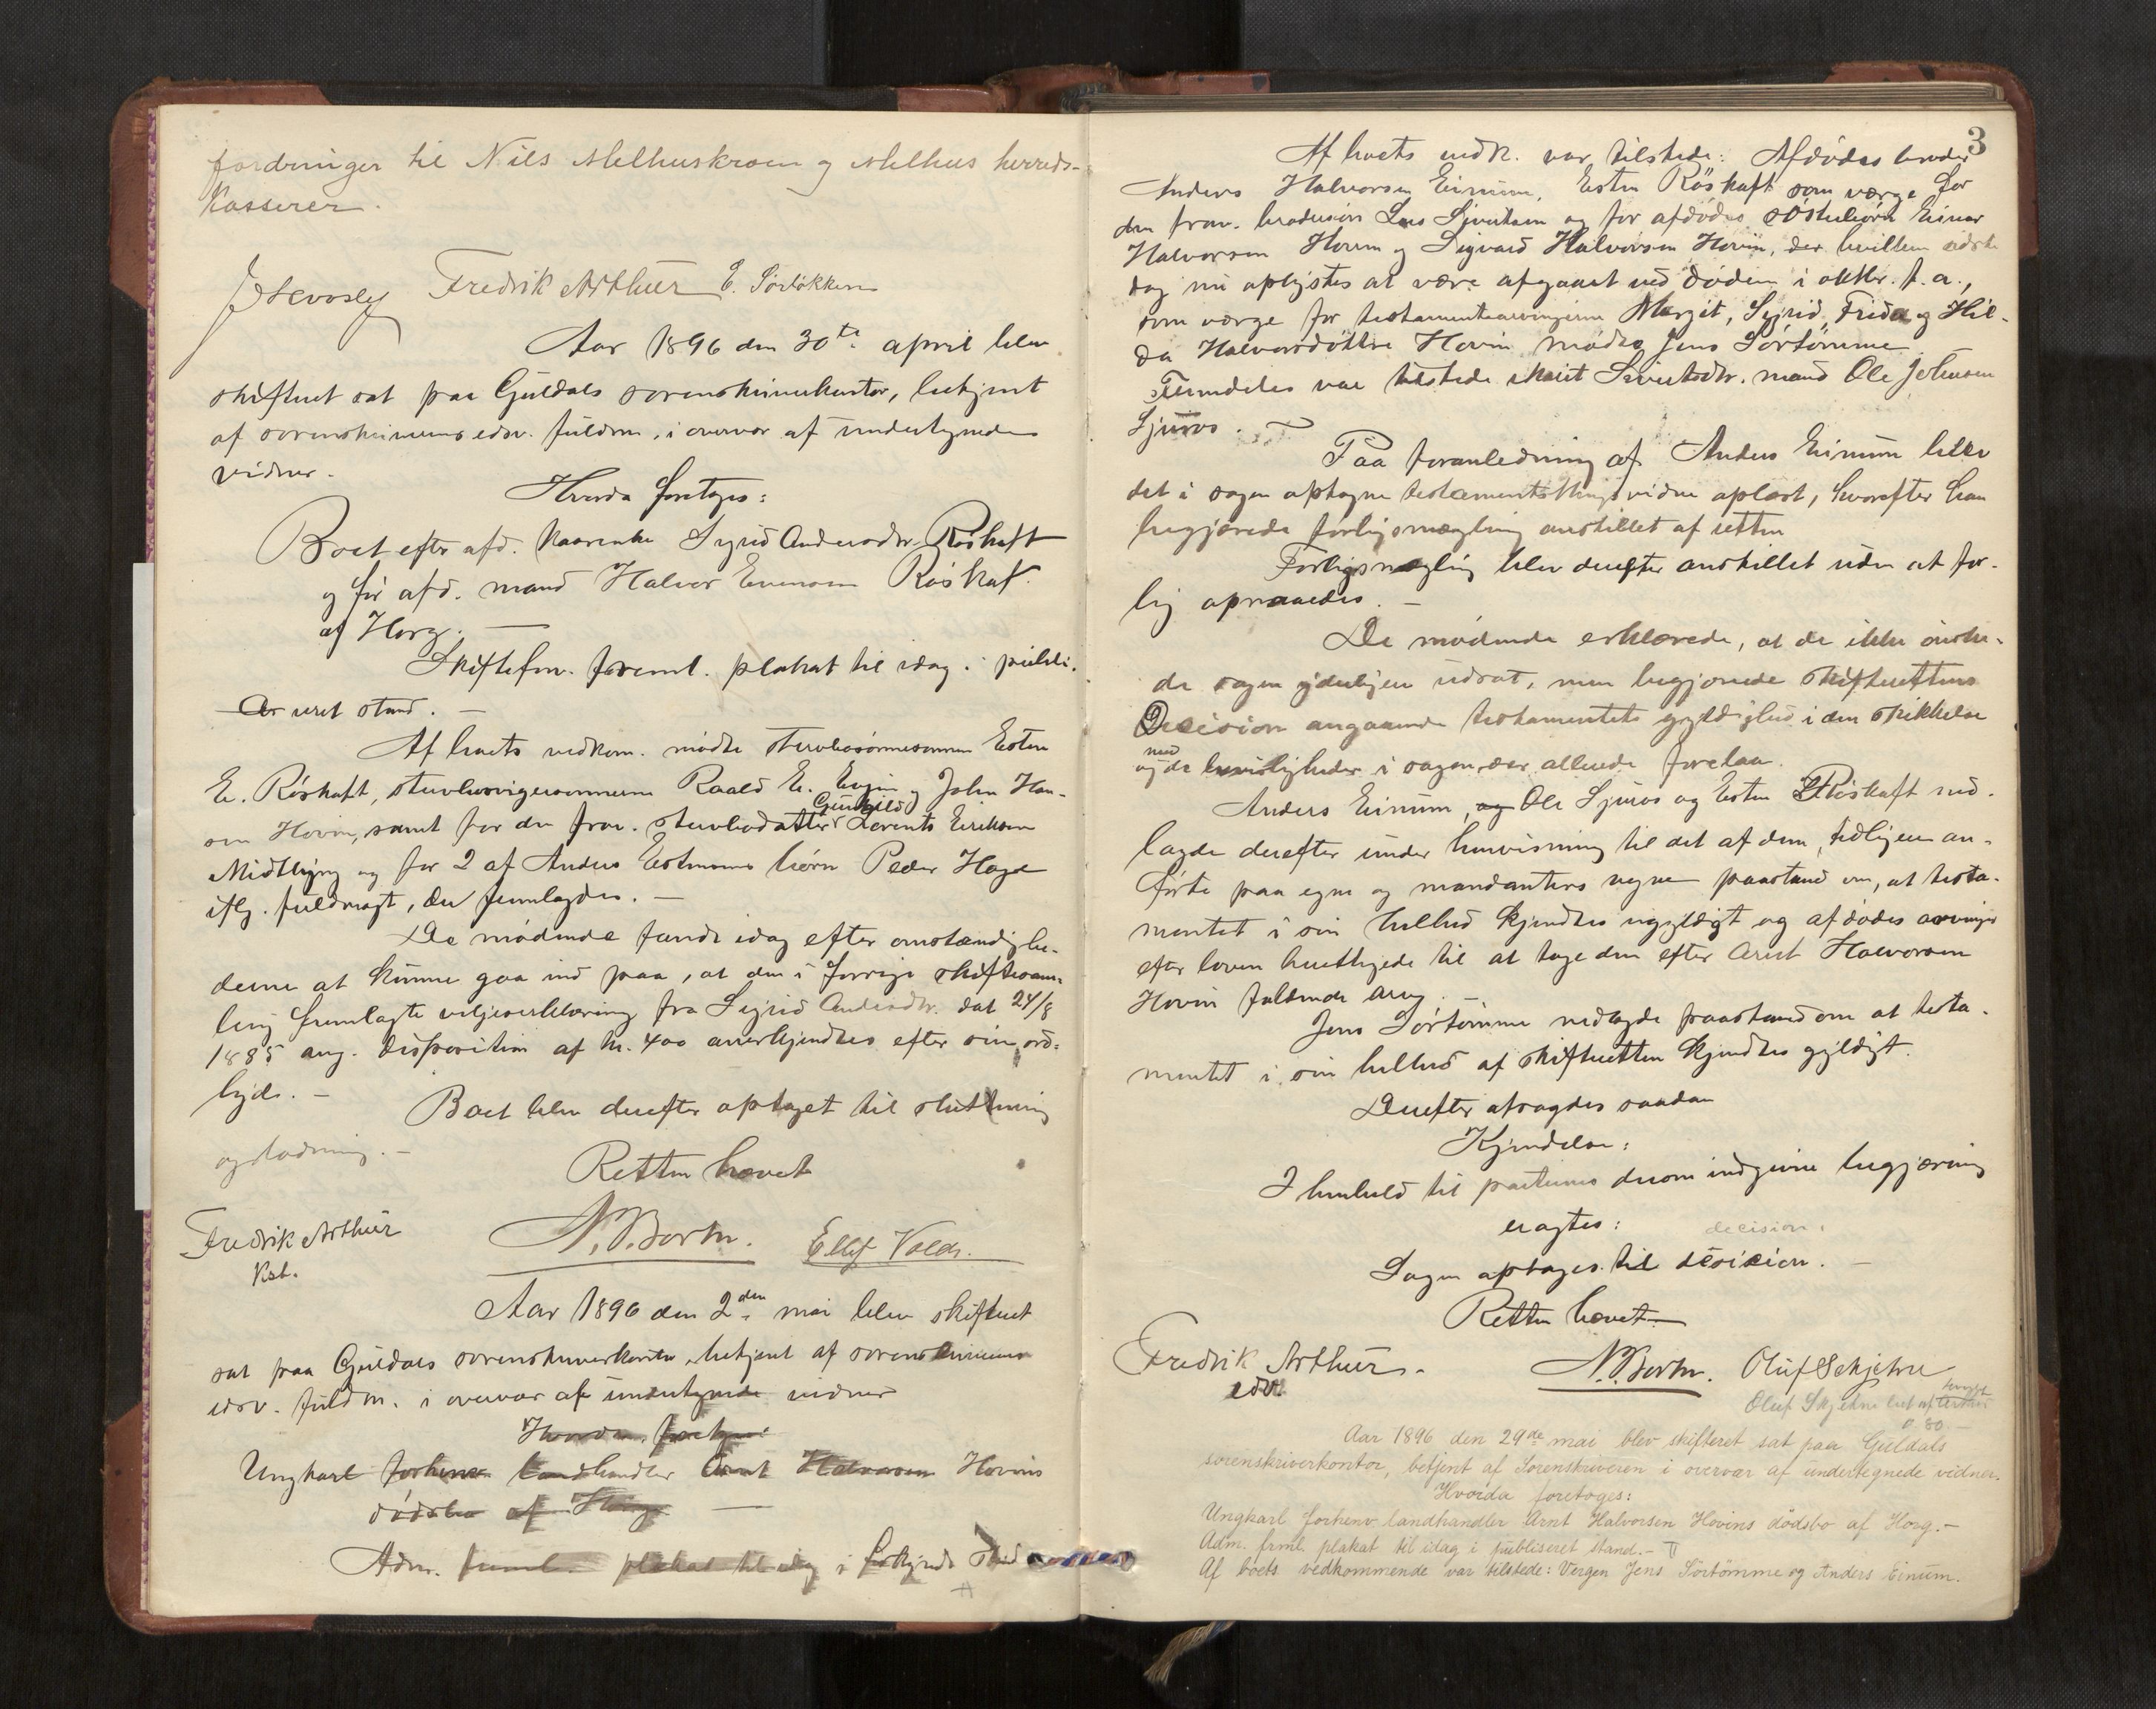 fordringer til Nils Melhuskroen og Melhus herreds-
kasserer.
Fredrik Arthur E. Sørløkken
Aar 1896 den 30te april blev
skifteret sat paa Guldals sorenskriverkontor, betjent
af sorenskriverens edsv. fuldm. i overvær af undertegnede
vidner.
Hvorda foretages:
Boet efter afd. kaarenke Sigrid Andersdtr. Røskaft
og før afd. mand Halvor Evensen Røskaft
af Horg. —
Skiftefor. freml. plakat til idag i publi-
ceret stand. —
Af boets vedkom. mødte stervbosønnesønnen Esten
E. Røskaft, stervbosvigersønnerne Roald E. og John Han-
sen Hovin, samt for den frav. stervbodatter Gunhild Lorents Eriksen
Midtlyng og for 2 af Anders Estensens børn Peder Haga
iflg. fuldmagt, der fremlagdes. —
De mødende fandt idag efter omstændighe-
derne at kunne gaa ind paa, at den i forrige skiftesam-
ling fremlagte viljeserklæring fra Sigrid Andersdtr. dat 24/8
1885 ang. disposition af kr. 400 anerkjendtes efter sin ord-
lyd. —
Boet blev derefter optaget til slutning
og lodning. —
Retten hævet
Fredrik Arthur N. P. Bortn. Ellef Volds.
kst.
Aar 1896 den 2den mai blev skifteret
sat paa Guldals sorenskriverkontor, betjent af sorenskriverens
edsv. fuldm. i overvær af undertegnede vidner
Hvorda foretages:
Ungkarl forhenv. landhandler Arnt Halvorsen Hovins
dødsbo af Horg —
Adm. freml. plakat til idag i forkyndt stand
3
Af boets vedk. var tilstede: Afdødes broder
Anders Halvorsen Einum, Esten Røskaft som værge for
den frav. brodersøn Lars Sjursen og for afdødes søsterbørn Einar
Halvorsen Hovin og Sigvard Halvorsen Hovin, der hvilken sidste
dog nu oplystes at være afgaaet ved døden i oktbr. f. a.,
som værge for testamentarvingerne Margit, Sigrid, Frida og Hil-
da Halvorsdøttre Hovin mødte Jens Sørtømme.
Fremdeles var tilstede Sivertsdtr. mand Ole Johnsen
Sjuros. —
Paa foranledning af Anders Einum blev
det i sagen optagne testamentsthingsvidne oplæst, hvorefter han
begjærede forligsmægling anstillet af retten
Forligsmægling blev derefter anstillet uden at for-
lig opnaaedes. —
De mødende erklærede, at de ikke ønske-
de sagen yderligere udsat, men begjærede skifterettens
Decision angaaende testamentets gyldighed i den skikkelse
og med de bevisligheder i sagen, der allerede forelaa.
Anders Einum, og Ole Sjuros og Esten Røskaft ned-
lagde derefter under henvisning til det af dem tidligere an-
førte paa egne og mandanters vegne paastand om, at testa-
mentet i sin helhed kjendtes ugyldigt og afdødes arvinger
efter loven berettigede til at tage den efter Arnt Halvorsen
Hovin faldende arv. —
Jens Sørtømme nedlagde paastand om at testa-
mentet i sin helhed af skifteretten kjendtes gyldigt.
Derefter afsagdes saadan
Kjendelse:
I henhold til parternes derom indgivne begjæring
eragtes: decision:
Sagen optages til decision. —
Retten hævet
Fredrik Arthur. N. P. Bortn. Oluf Skjetne
edsv.
Oluf Skjetne
ø 80.—
Aar 1896 den 29de mai blev skifteret sat paa Guldals
sorenskriverkontor, betjent af Sorenskriveren i overvær af undertegnede vidner.
Hvorda foretoges:
Ungkarl forhenv. landhandler Arnt Halvorsen Hovins dødsbo af Horg.—
Adm. freml. plakat til idag i publiseret stand.—
Af boets vedkommende var tilstede: Vergen Jens Sørtømme og Anders Einum.